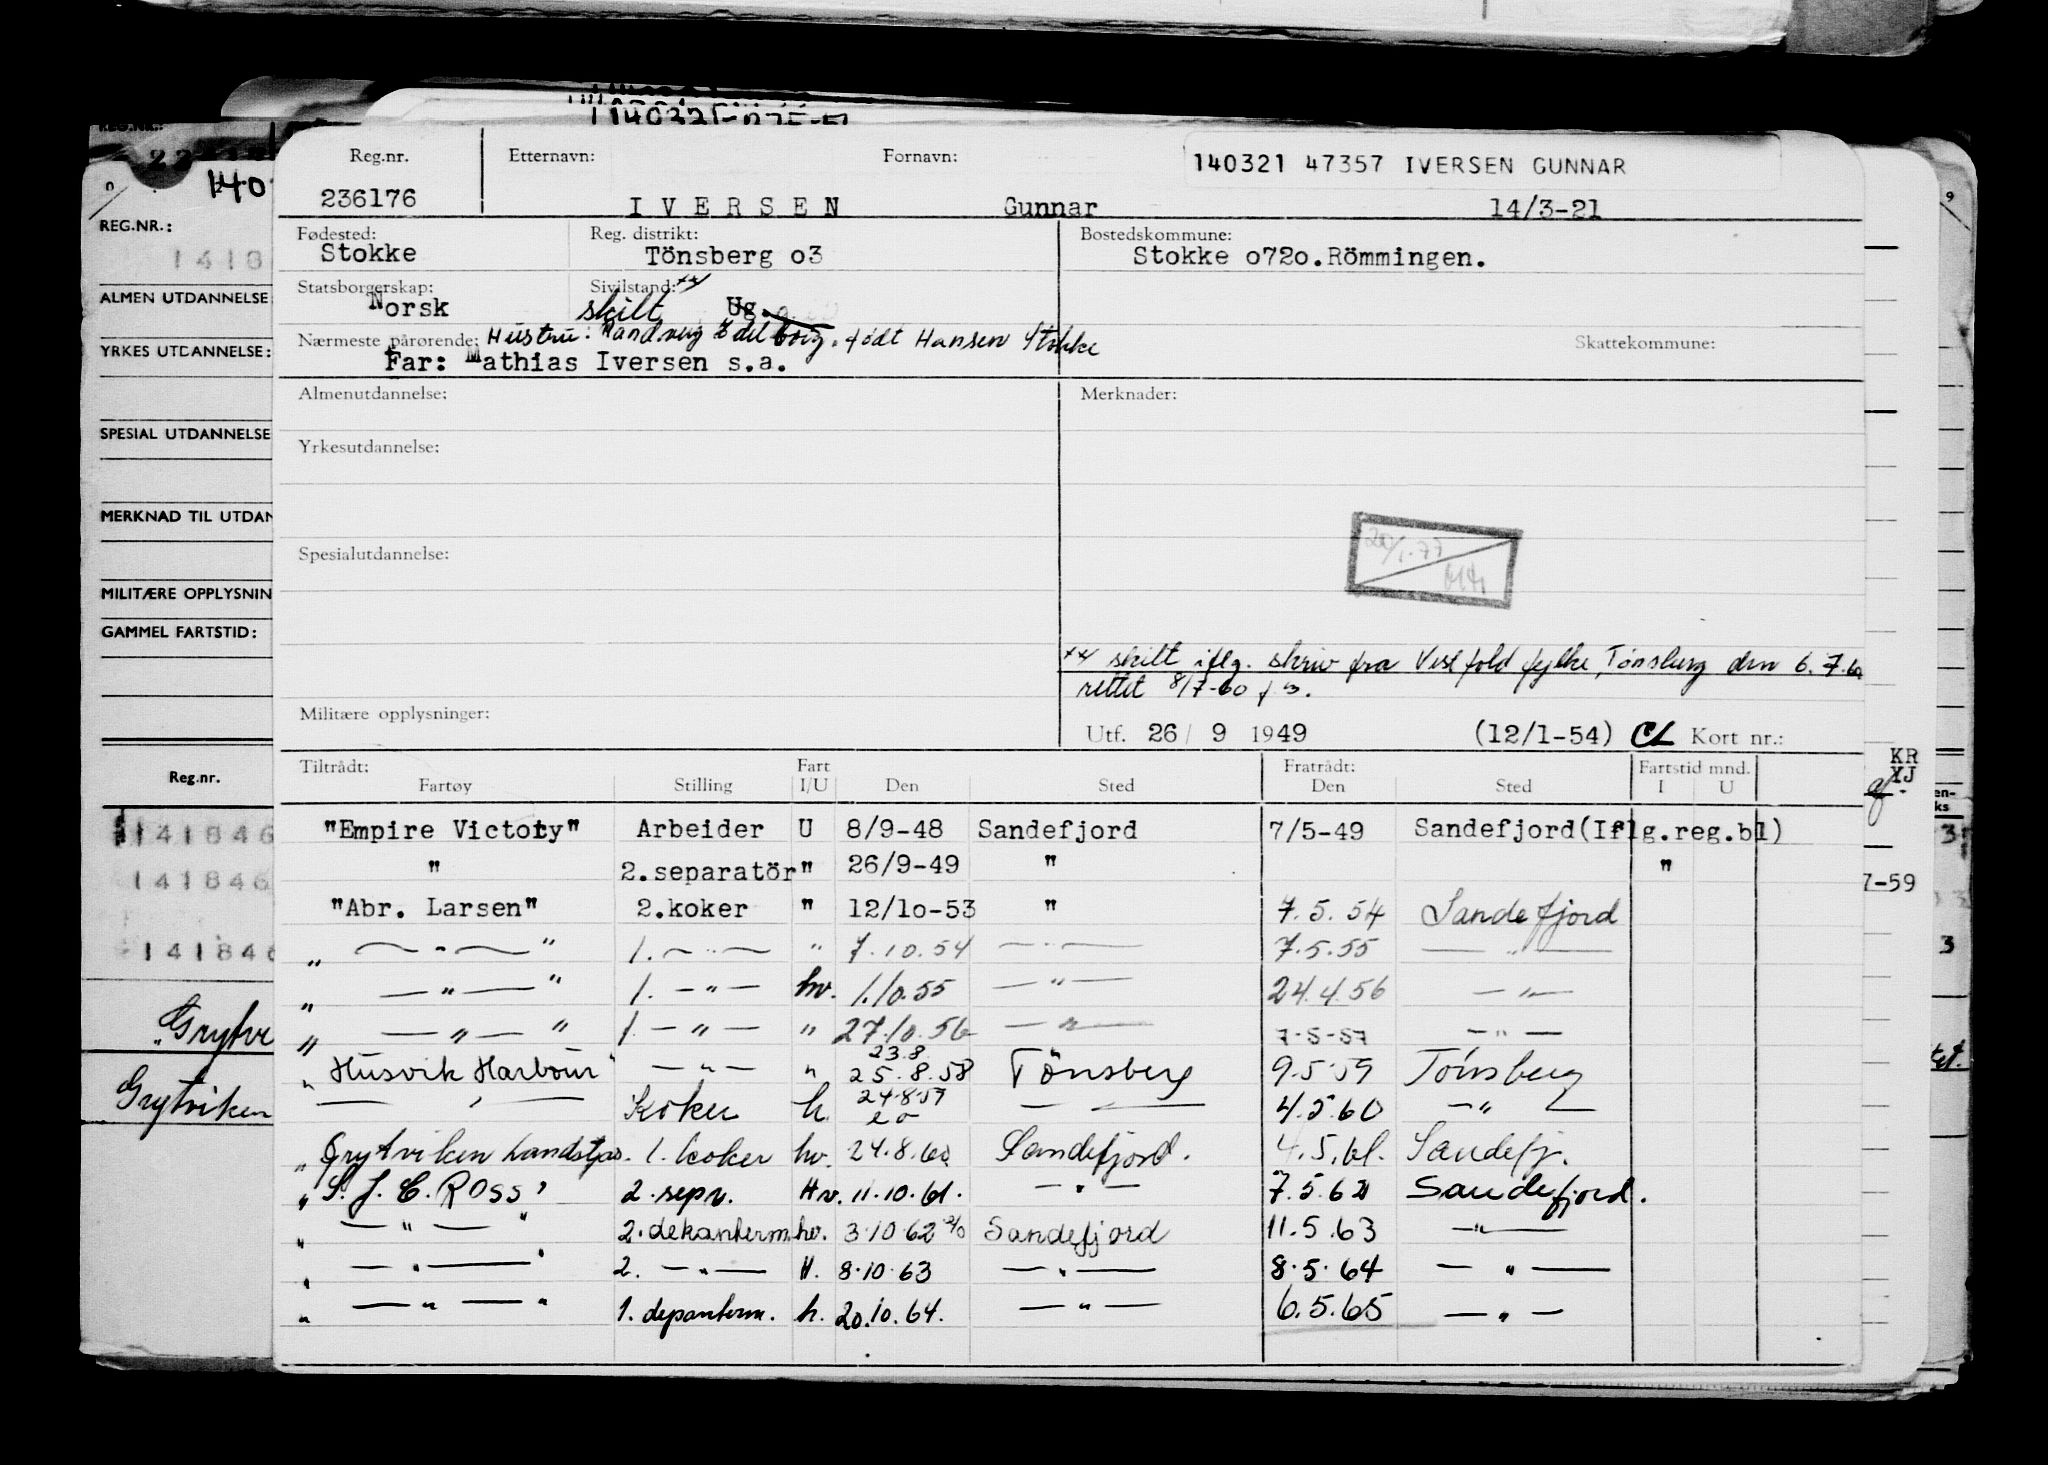 140321-
REG.NR.:
22
140
REG.NR.:
1418
ALMEN UTDANNELSE
YRKES UTDANNELSE:
SPESIAL UTDANNELSE
MERKNAD TIL UTDAN
MILITÆRE OPPLYSNIN
GAMMEL FARTSTID:
Reg.nr.
141846
141846
141846
"Grytvi
Grytviken
Reg.nr. Etternavn: Fornavn: 140321 47357 IVERSEN GUNNAR
236176 I V E R S E N Gunnar 14/3-21
Fødested: Reg. distrikt: Bostedskommune:
Stokke Tönsberg o3 Stokke o72o.Römmingen.
Statsborgerskap: Sivilstand:
Norsk skilt Ug.
Nærmeste pårørende: Hustru: Edelborg. født Hansen Stokke Skattekommune:
Far: Mathias Iversen s.a.
Almenutdannelse: Merknader:
Yrkesutdannelse:
Spesialutdannelse:
skilt iflg. skriv fra Vestfold fylke, Tönsberg den 6.7.60
rettet 8/7-60
Militære opplysninger:
Utf. 26/ 9 1949 (12/1-54) CL Kort nr.:
Tiltrådt: Fart Fratrådt: Fartstid mnd.
Fartøy Stilling I/U Den Sted Den Sted I U
"Empire Victory" Arbeider U 8/9-48 Sandefjord 7/5-49 Sandefjord(Iflg.reg.bl)
" 2.separatör " 26/9-49 " "
"Abr. Larsen" 2.koker " 12/1o-53 " 7.5.54 Sandefjord
" — " — " 1. — " — " 7.10.54 — " — 7.5.55 — " —
" — " — " 1. — " — hv. 1.10.55 — " — 24.4.56 — " —
" — " — " 1. — " — " 27.10.56 — " — 7-5-57 — " —
23.8
" Husvik Harbour" — " — " 25.8.58 Tönsberg 9.5.59 Tönsberg
24.8.59
— " — Koker h. — " — 4.5.60 — " —
" Grytviken landstas. 1. koker hv. 24.8.60 Sandefjord. 4.5.61. Sandefj.
" S. J. C. Ross" 2. sepr. Hv. 11.10.61. — " — 7.5.62 Sandefjord.
" — " — " 2. dekanterm. hv. 3.10 62 Sandefjord 11.5.63 — " —
" — " — " 2. — " — H. 8.10.63 — " — 8.5.64 — " —
" — " — " 1. depanterm. h. 20.10.64. — " — 6.5.65 — " —
9
KR
YJ
en-
ks
3
7-59
3
ket.